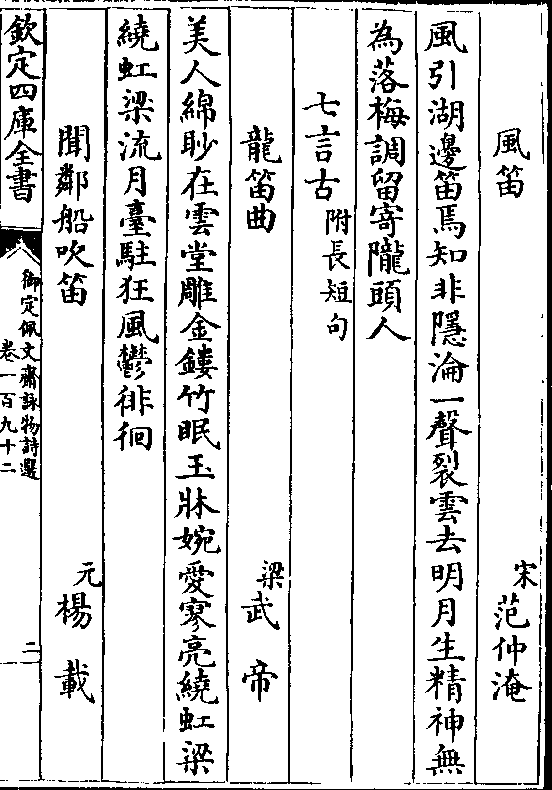 風笛
宋范仲淹
風引湖邊笛焉知非隱淪一聲裂雲去明月生精神無
為落梅調留寄隴頭人
七言古附長短句
龍笛曲
梁武帝
美人綿眇在雲堂雕金鏤竹眠玉牀婉愛寥亮繞虹梁
繞虹梁流月臺駐狂風鬱徘徊
聞鄰船吹笛
元楊載
欽定四庫全書
御定佩文齋詠物詩選
卷一百九十二
二